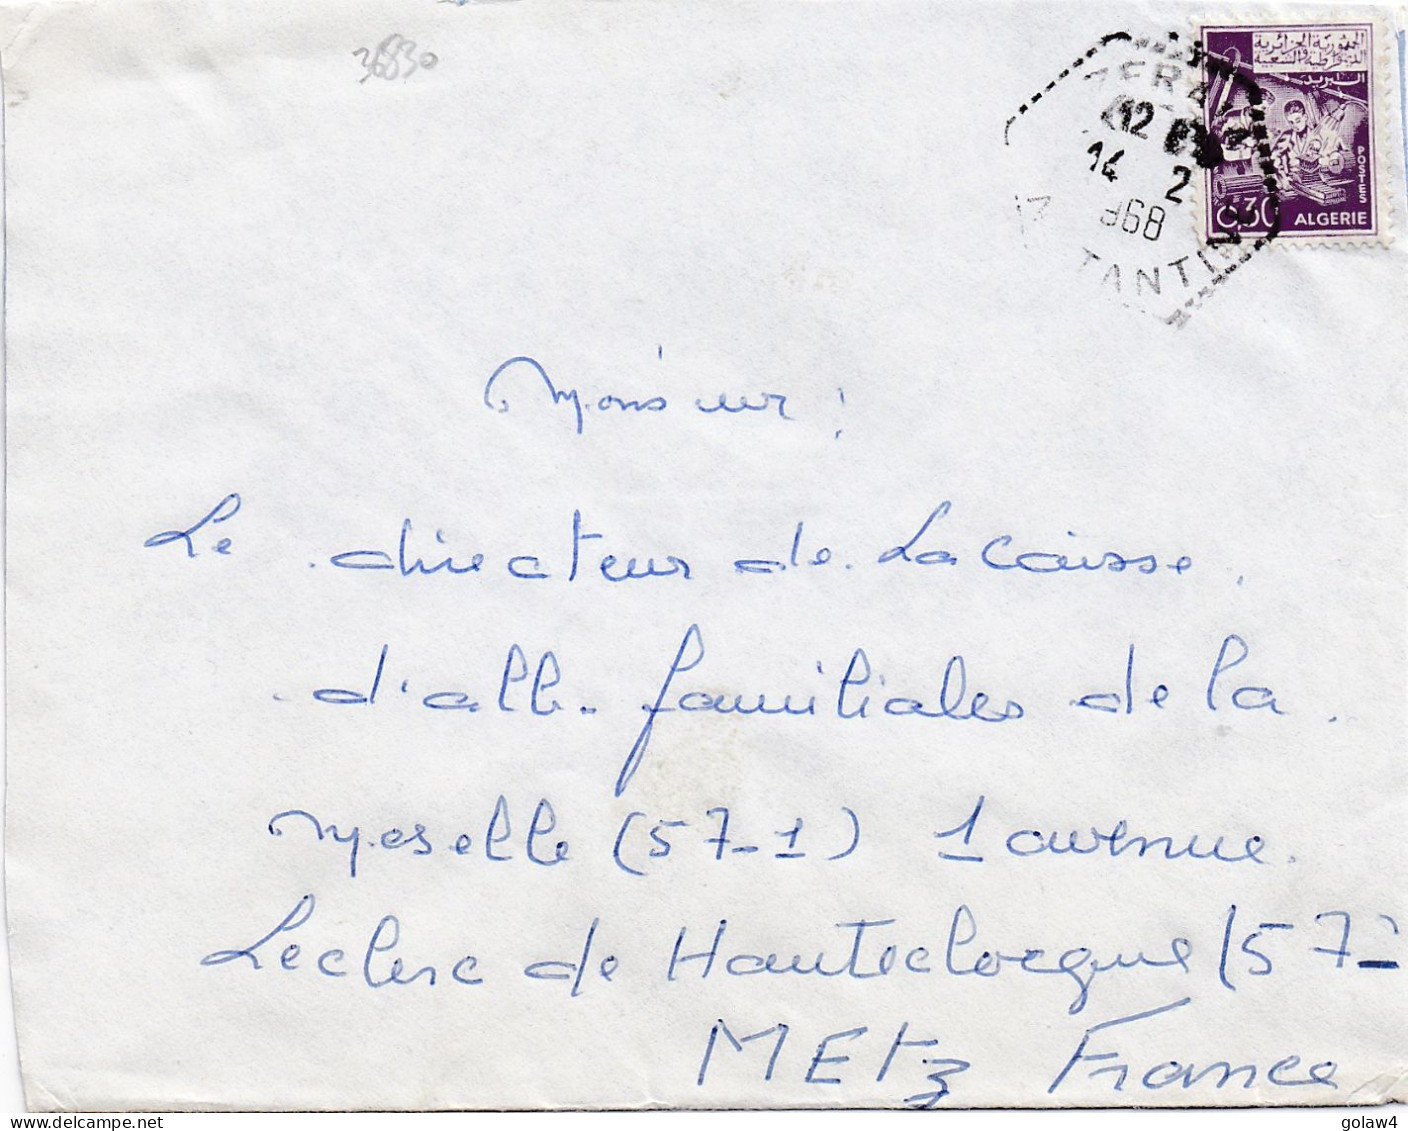 36830
الجمهورية الجزائرية
الديمقراطية الشعبية
البريد
POSTES
0,30 ALGERIE
12
14 2
968
TANTI
Monsieur :
Le directeur de La Caisse
d'all. familiales de la
Moselle (57-1) 1 avenue
Leclerc de Hauteclocque (57-
METz France
delcampe.net
golaw4